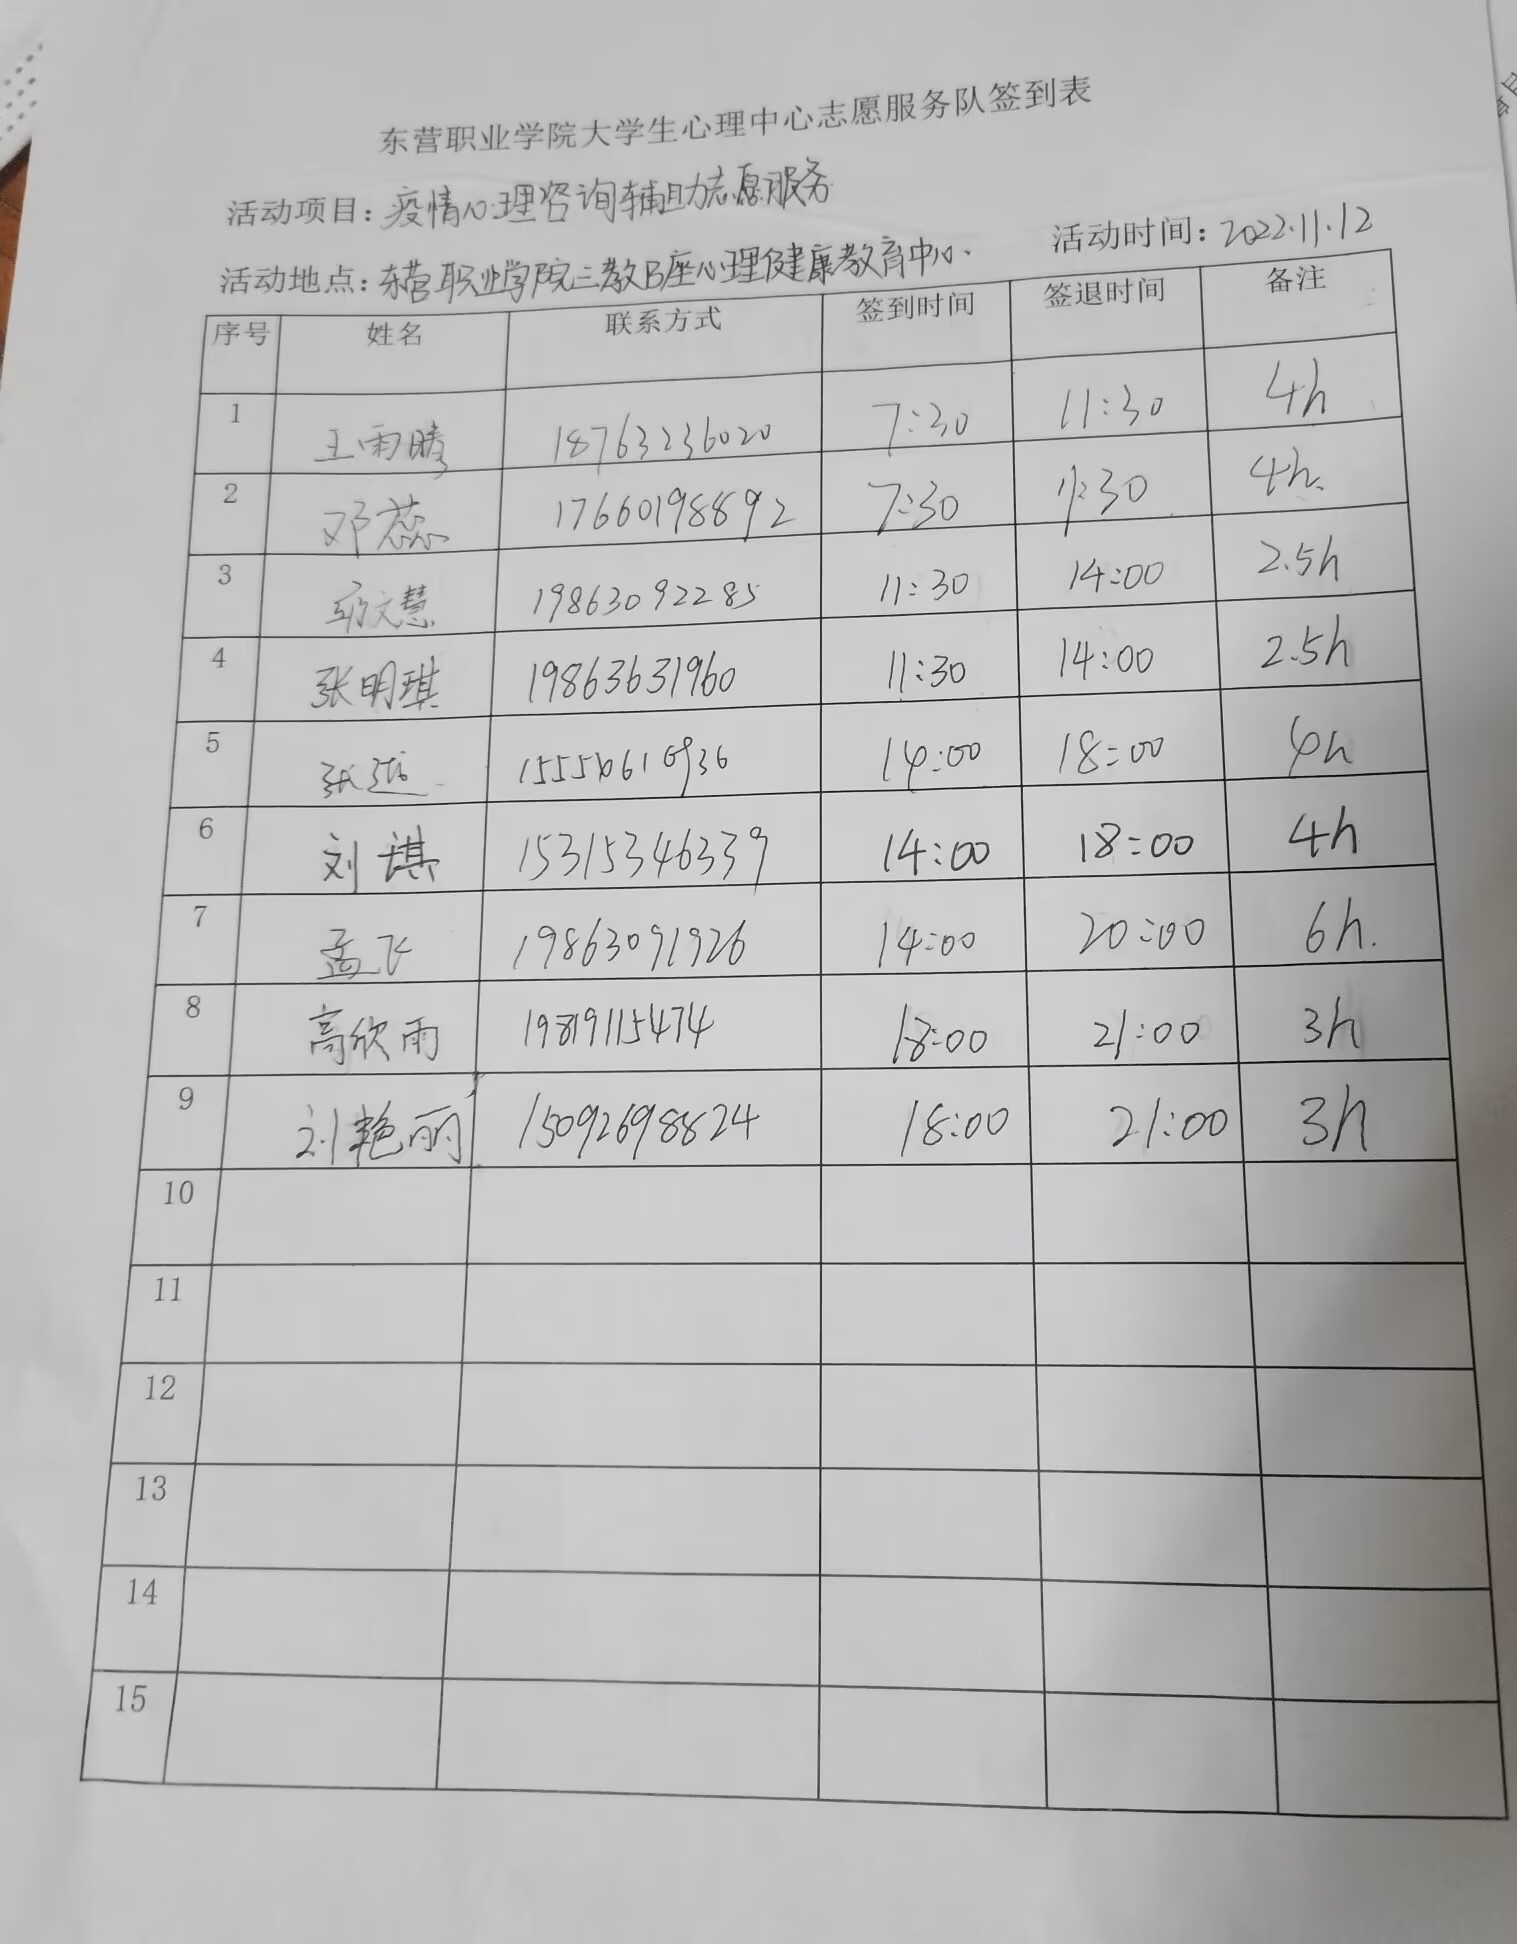 东营职业学院大学生心理中心志愿服务队签到表
活动项目：疫情心理咨询辅助志愿服务
活动地点：东营职业学院三教B座心理健康教育中心. 活动时间：2022.11.12
序号 姓名 联系方式 签到时间 签退时间 备注
1 王雨晴 18763236020 7:30 11:30 4h
2 邓蕊 17660198892 7:30 11:30 4h.
3 文慧 19863092285 11:30 14:00 2.5h
4 张明琪 19863631960 11:30 14:00 2.5h
5 张 14:00 18:00 4h
6 刘琪 15315346339 14:00 18:00 4h
7 孟飞 19863091926 14:00 20:00 6h.
8 高欣雨 19819115474 18:00 21:00 3h
9 刘艳丽 15092698824 18:00 21:00 3h
10
11
12
13
14
15